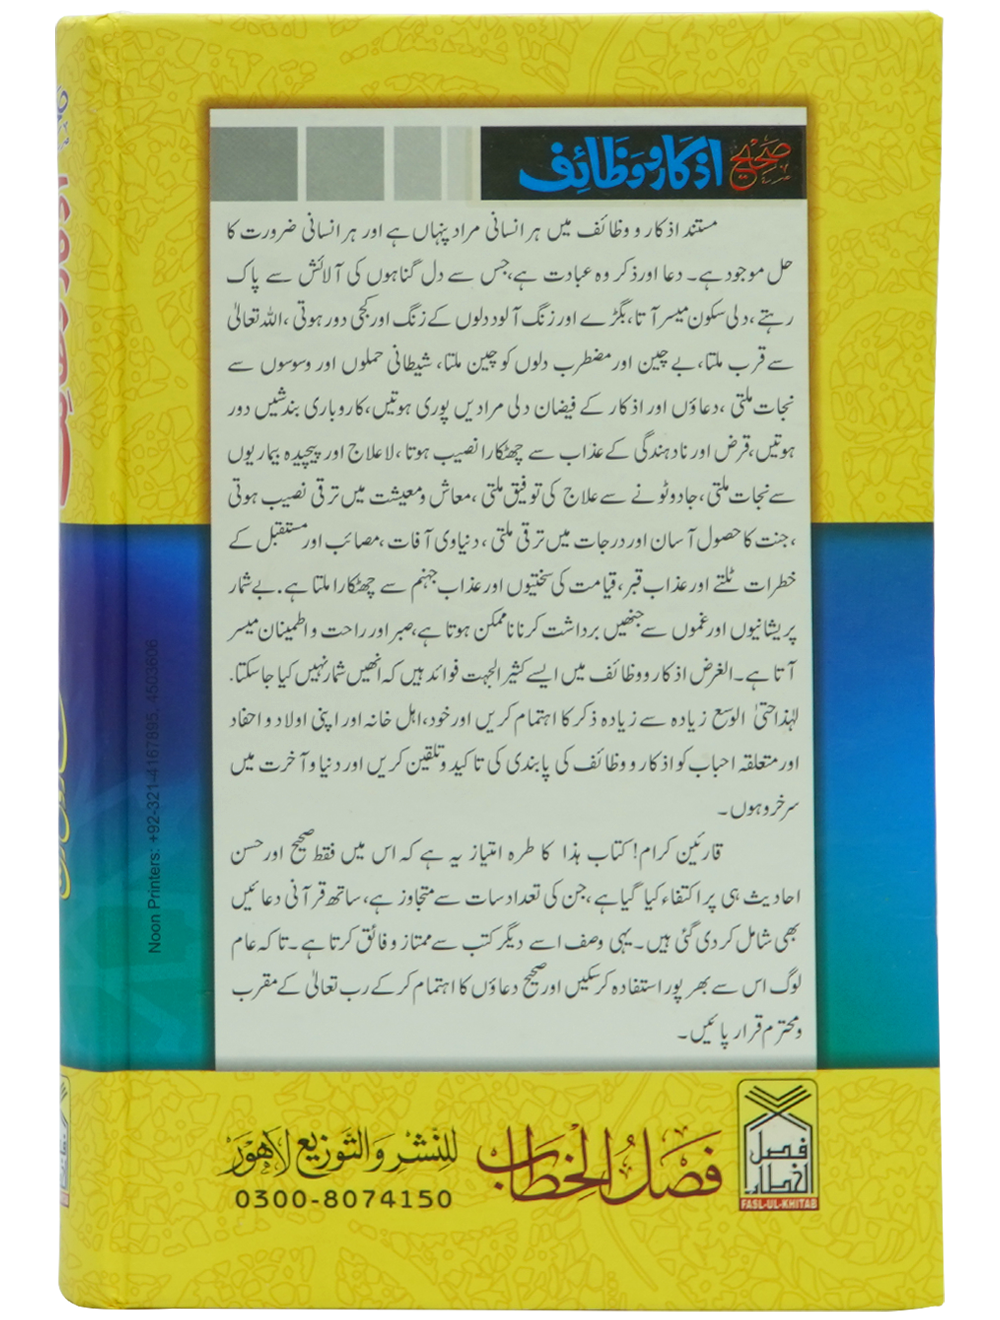 صحیح اذکار و وظائف
مستند اذکار و وظائف میں ہر انسانی مراد پنہاں ہے اور ہر انسانی ضرورت کا
حل موجود ہے۔ دعا اور ذکر وہ عبادت ہے، جس سے دل گناہوں کی آلائش سے پاک
رہتے، دلی سکون میسر آتا، بگڑے اور زنگ آلود دلوں کے زنگ اور کجی دور ہوتی، اللہ تعالیٰ
سے قرب ملتا، بے چین اور مضطرب دلوں کو چین ملتا، شیطانی حملوں اور وسوسوں سے
نجات ملتی، دعاؤں اور اذکار کے فیضان دلی مرادیں پوری ہوتیں، کاروباری بندشیں دور
ہوتیں، قرض اور نادہندگی کے عذاب سے چھٹکارا نصیب ہوتا، لاعلاج اور پیچیدہ بیماریوں
سے نجات ملتی، جادو ٹونے سے علاج کی توفیق ملتی، معاش و معیشت میں ترقی نصیب ہوتی
، جنت کا حصول آسان اور درجات میں ترقی ملتی، دنیاوی آفات، مصائب اور مستقبل کے
خطرات ٹلتے اور عذاب قبر، قیامت کی سختیوں اور عذاب جہنم سے چھٹکارا ملتا ہے۔ بے شمار
پریشانیوں اور غموں سے جنھیں برداشت کرنا ناممکن ہوتا ہے، صبر اور راحت و اطمینان میسر
آتا ہے۔ الغرض اذکار و وظائف میں ایسے کثیر الجہت فوائد ہیں کہ انھیں شمار نہیں کیا جا سکتا.
لہٰذا حتیٰ الوسع زیادہ سے زیادہ ذکر کا اہتمام کریں اور خود، اہل خانہ اور اپنی اولاد و احفاد
اور متعلقہ احباب کو اذکار و وظائف کی پابندی کی تاکید و تلقین کریں اور دنیا و آخرت میں
سرخرو ہوں۔
قارئین کرام! کتاب ہذا کا طرہ امتیاز یہ ہے کہ اس میں فقط صحیح اور حسن
احادیث ہی پر اکتفاء کیا گیا ہے، جن کی تعداد سات سے متجاوز ہے، ساتھ قرآنی دعائیں
بھی شامل کر دی گئی ہیں۔ یہی وصف اسے دیگر کتب سے ممتاز و فائق کرتا ہے۔ تاکہ عام
لوگ اس سے بھرپور استفادہ کر سکیں اور صحیح دعاؤں کا اہتمام کر کے رب تعالیٰ کے مقرب
و محترم قرار پائیں۔
فصل الخطاب
FASL-UL-KHITAB
فَصْلُ الْخِطَاب للنشر والتوزیع لاہور
0300-8074150
Noon Printers: +92-321-4167895, 4503606